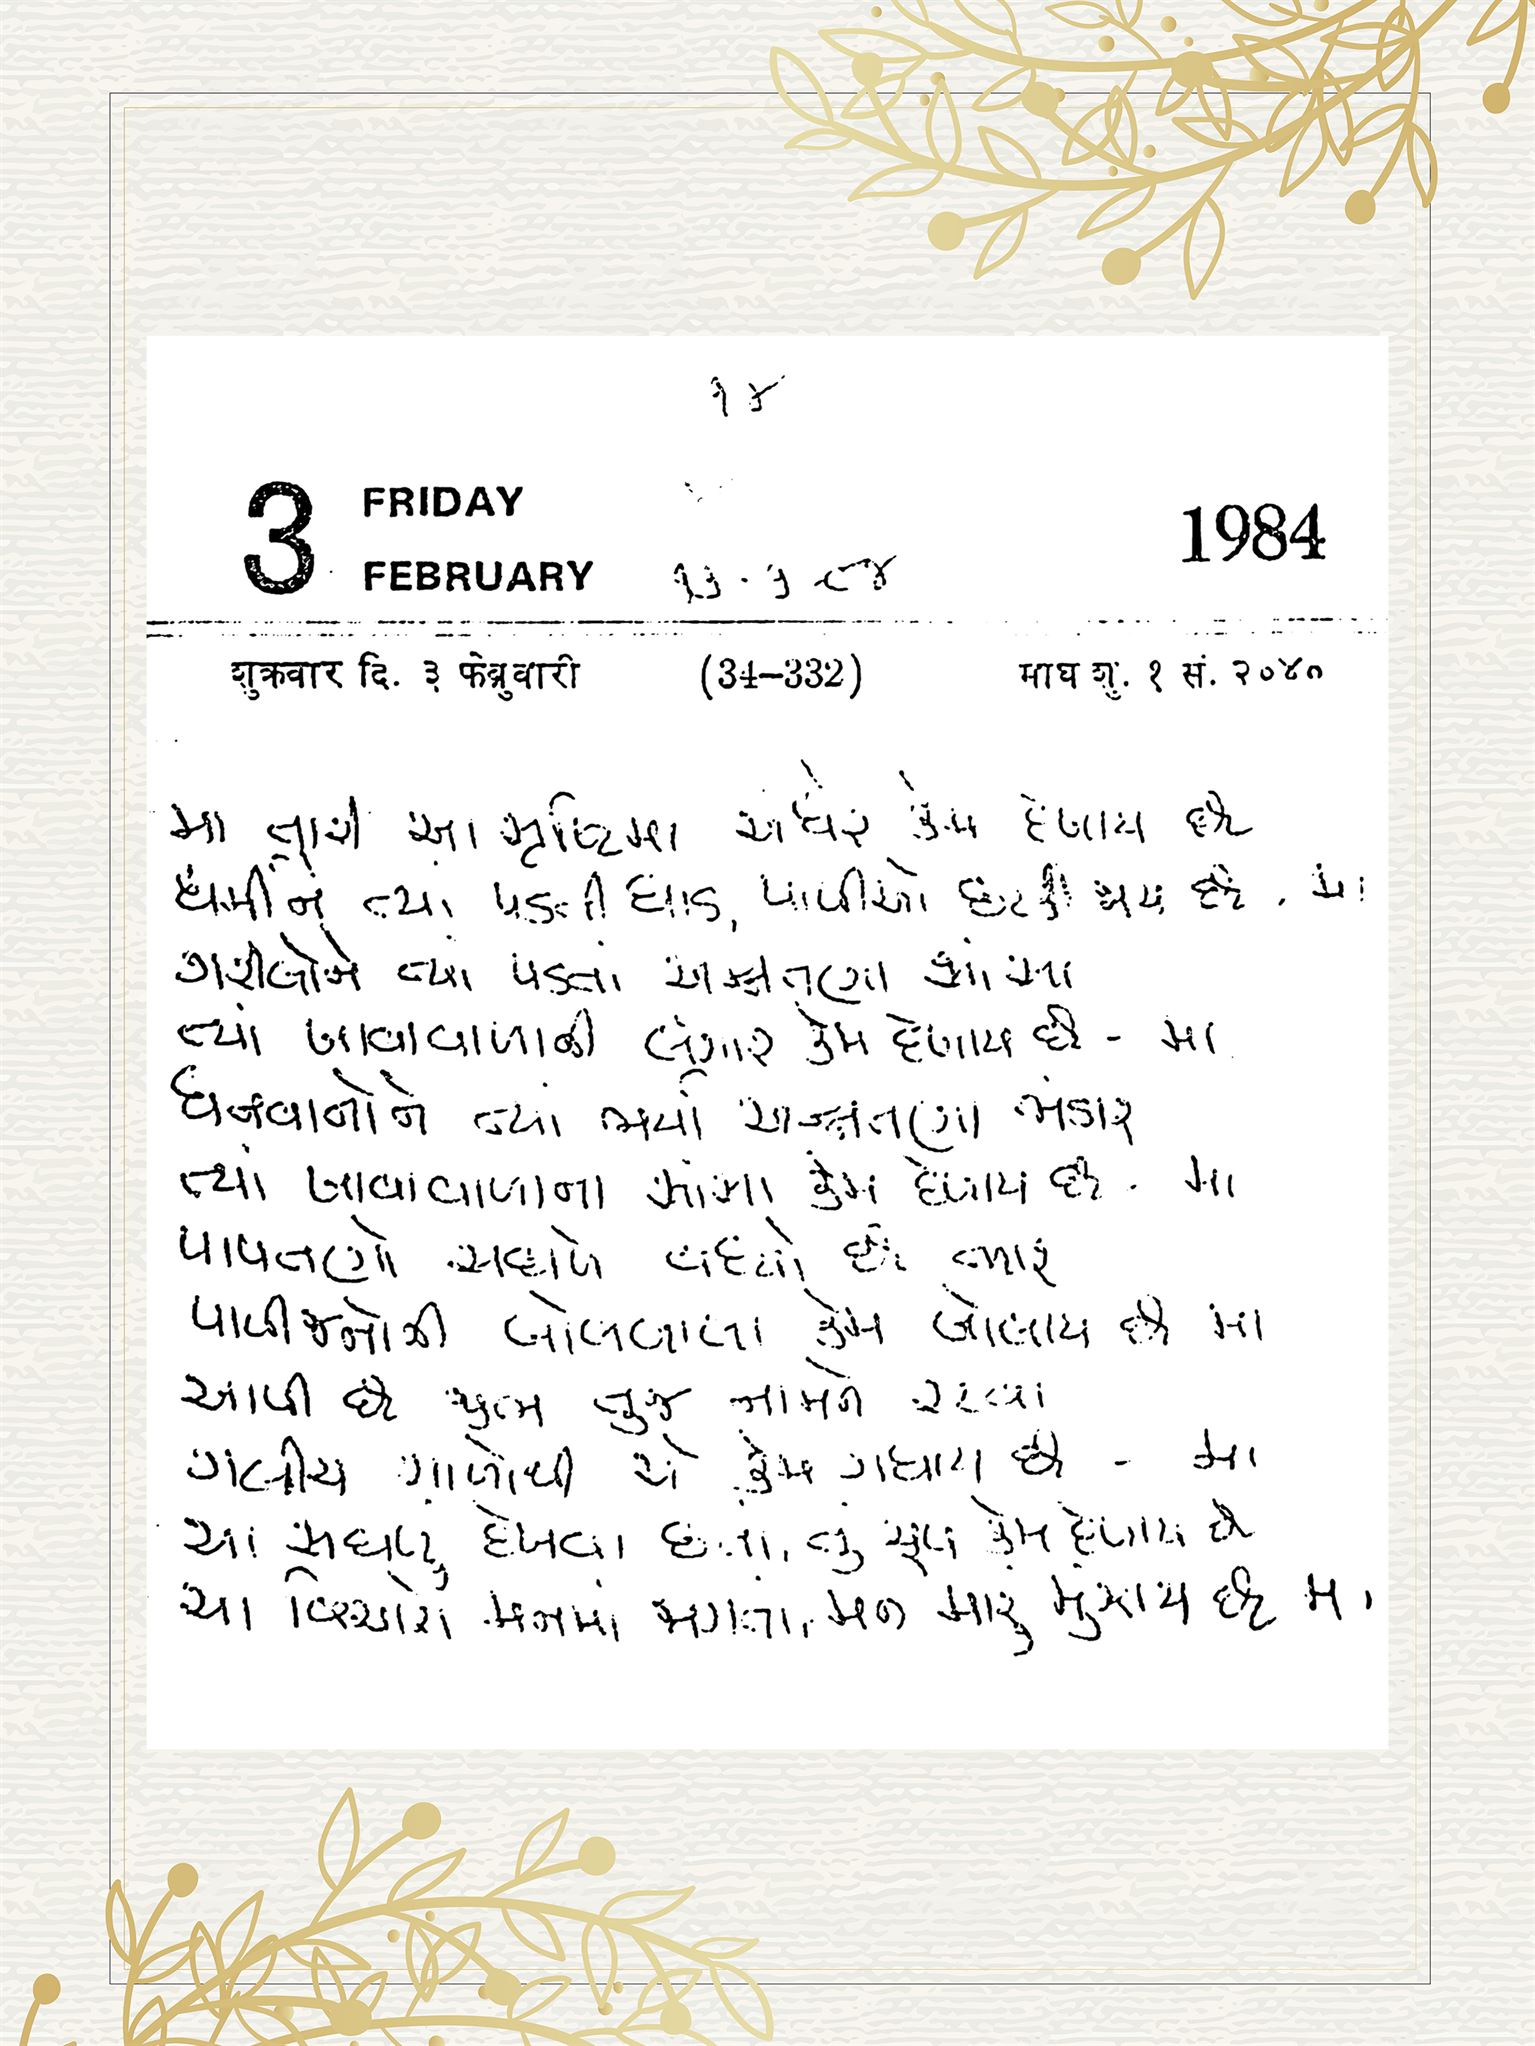 ૧૪
3 FRIDAY
FEBRUARY ૧૩.૩ ૮૪ 1984
शुक्रवार दि. ३ फेब्रुवारी (34-332) माघ शु. १ सं. २०४०
મા તારી આ સૃષ્ટિમા અંધેર કેમ દેખાય છે
ધર્મીને ત્યાં પડતી ધાડ, પાપીઓ છટકી જાય છે . મા
ગરીબોને ત્યાં પડતા અન્નતણા સાંસા
ત્યાં ખાવાવાળાની લંગાર કેમ દેખાય છે - મા
ધનવાનોને ત્યાં ભર્યા અન્નતણા ભંડાર
ત્યાં ખાવાવાળાના સાંસા કેમ દેખાય છે . મા
પાપતણો સદાયે છે ત્યારે
પાપીજનોની બોલબાલા કેમ બોલાય છે મા
આપી છે મુખ તુજ નામને રટવા
ગંદીય ગાળોથી એ કેમ ગંધાય છે - મા
આ સઘળું દેખવા છતાં, તુ ચૂપ કેમ દેખાય છે
આ વિચારો મનમાં જાગતા, મન મારું મુંઝાય છે મા